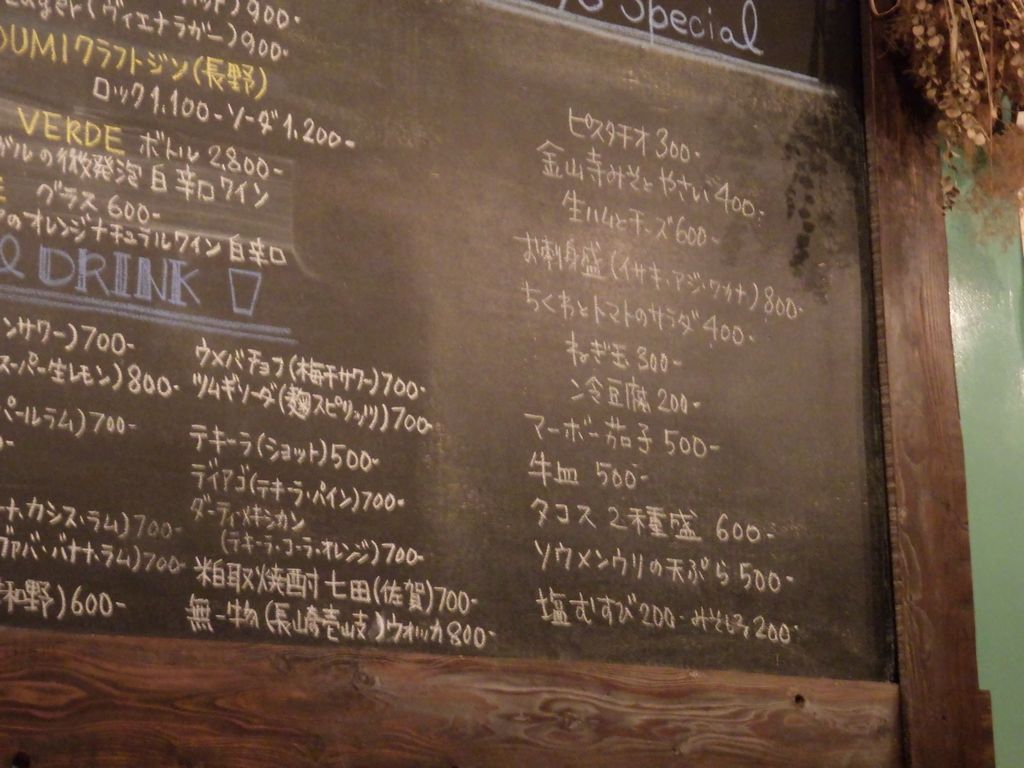 (ヴィエナラガー)900-
クラフトジン(長野)
ロック1,100-ソーダ1,200-
VERDE ボトル 2,800-
の微発泡 白 辛口 ワイン
グラス 600-
のオレンジナチュラルワイン 白 辛口
DRINK
ンサワー)700-
スーパー生レモン)800-
パールラム)700-
カシス・ラム)700-
バナナ・ラム)700-
和野)600-
ウメバチョフ(梅干サワー)700-
ツムギソーダ(麹スピリッツ)700-
テキーラ(ショット)500-
ディアゴ(テキーラ・パイン)700-
ダーティメキシカン
(テキーラ・コーラ・オレンジ)700-
粕取焼酎 七田(佐賀)700-
無一物(長崎壱岐)ウォッカ800-
Special
ピスタチオ 300-
金山寺みそとやさい 400-
生ハムとチーズ 600-
お刺身盛(イサキ・アジ・ワカナ)800-
ちくわとトマトのサラダ 400-
ねぎ玉 300-
冷豆腐 200-
マーボー茄子 500-
牛皿 500-
タコス 2種盛 600-
ソウメンウリの天ぷら 500-
塩むすび 200- みそしる 200-